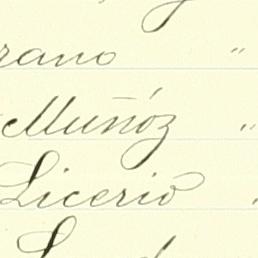 rano "
Muñóz "
Licerio